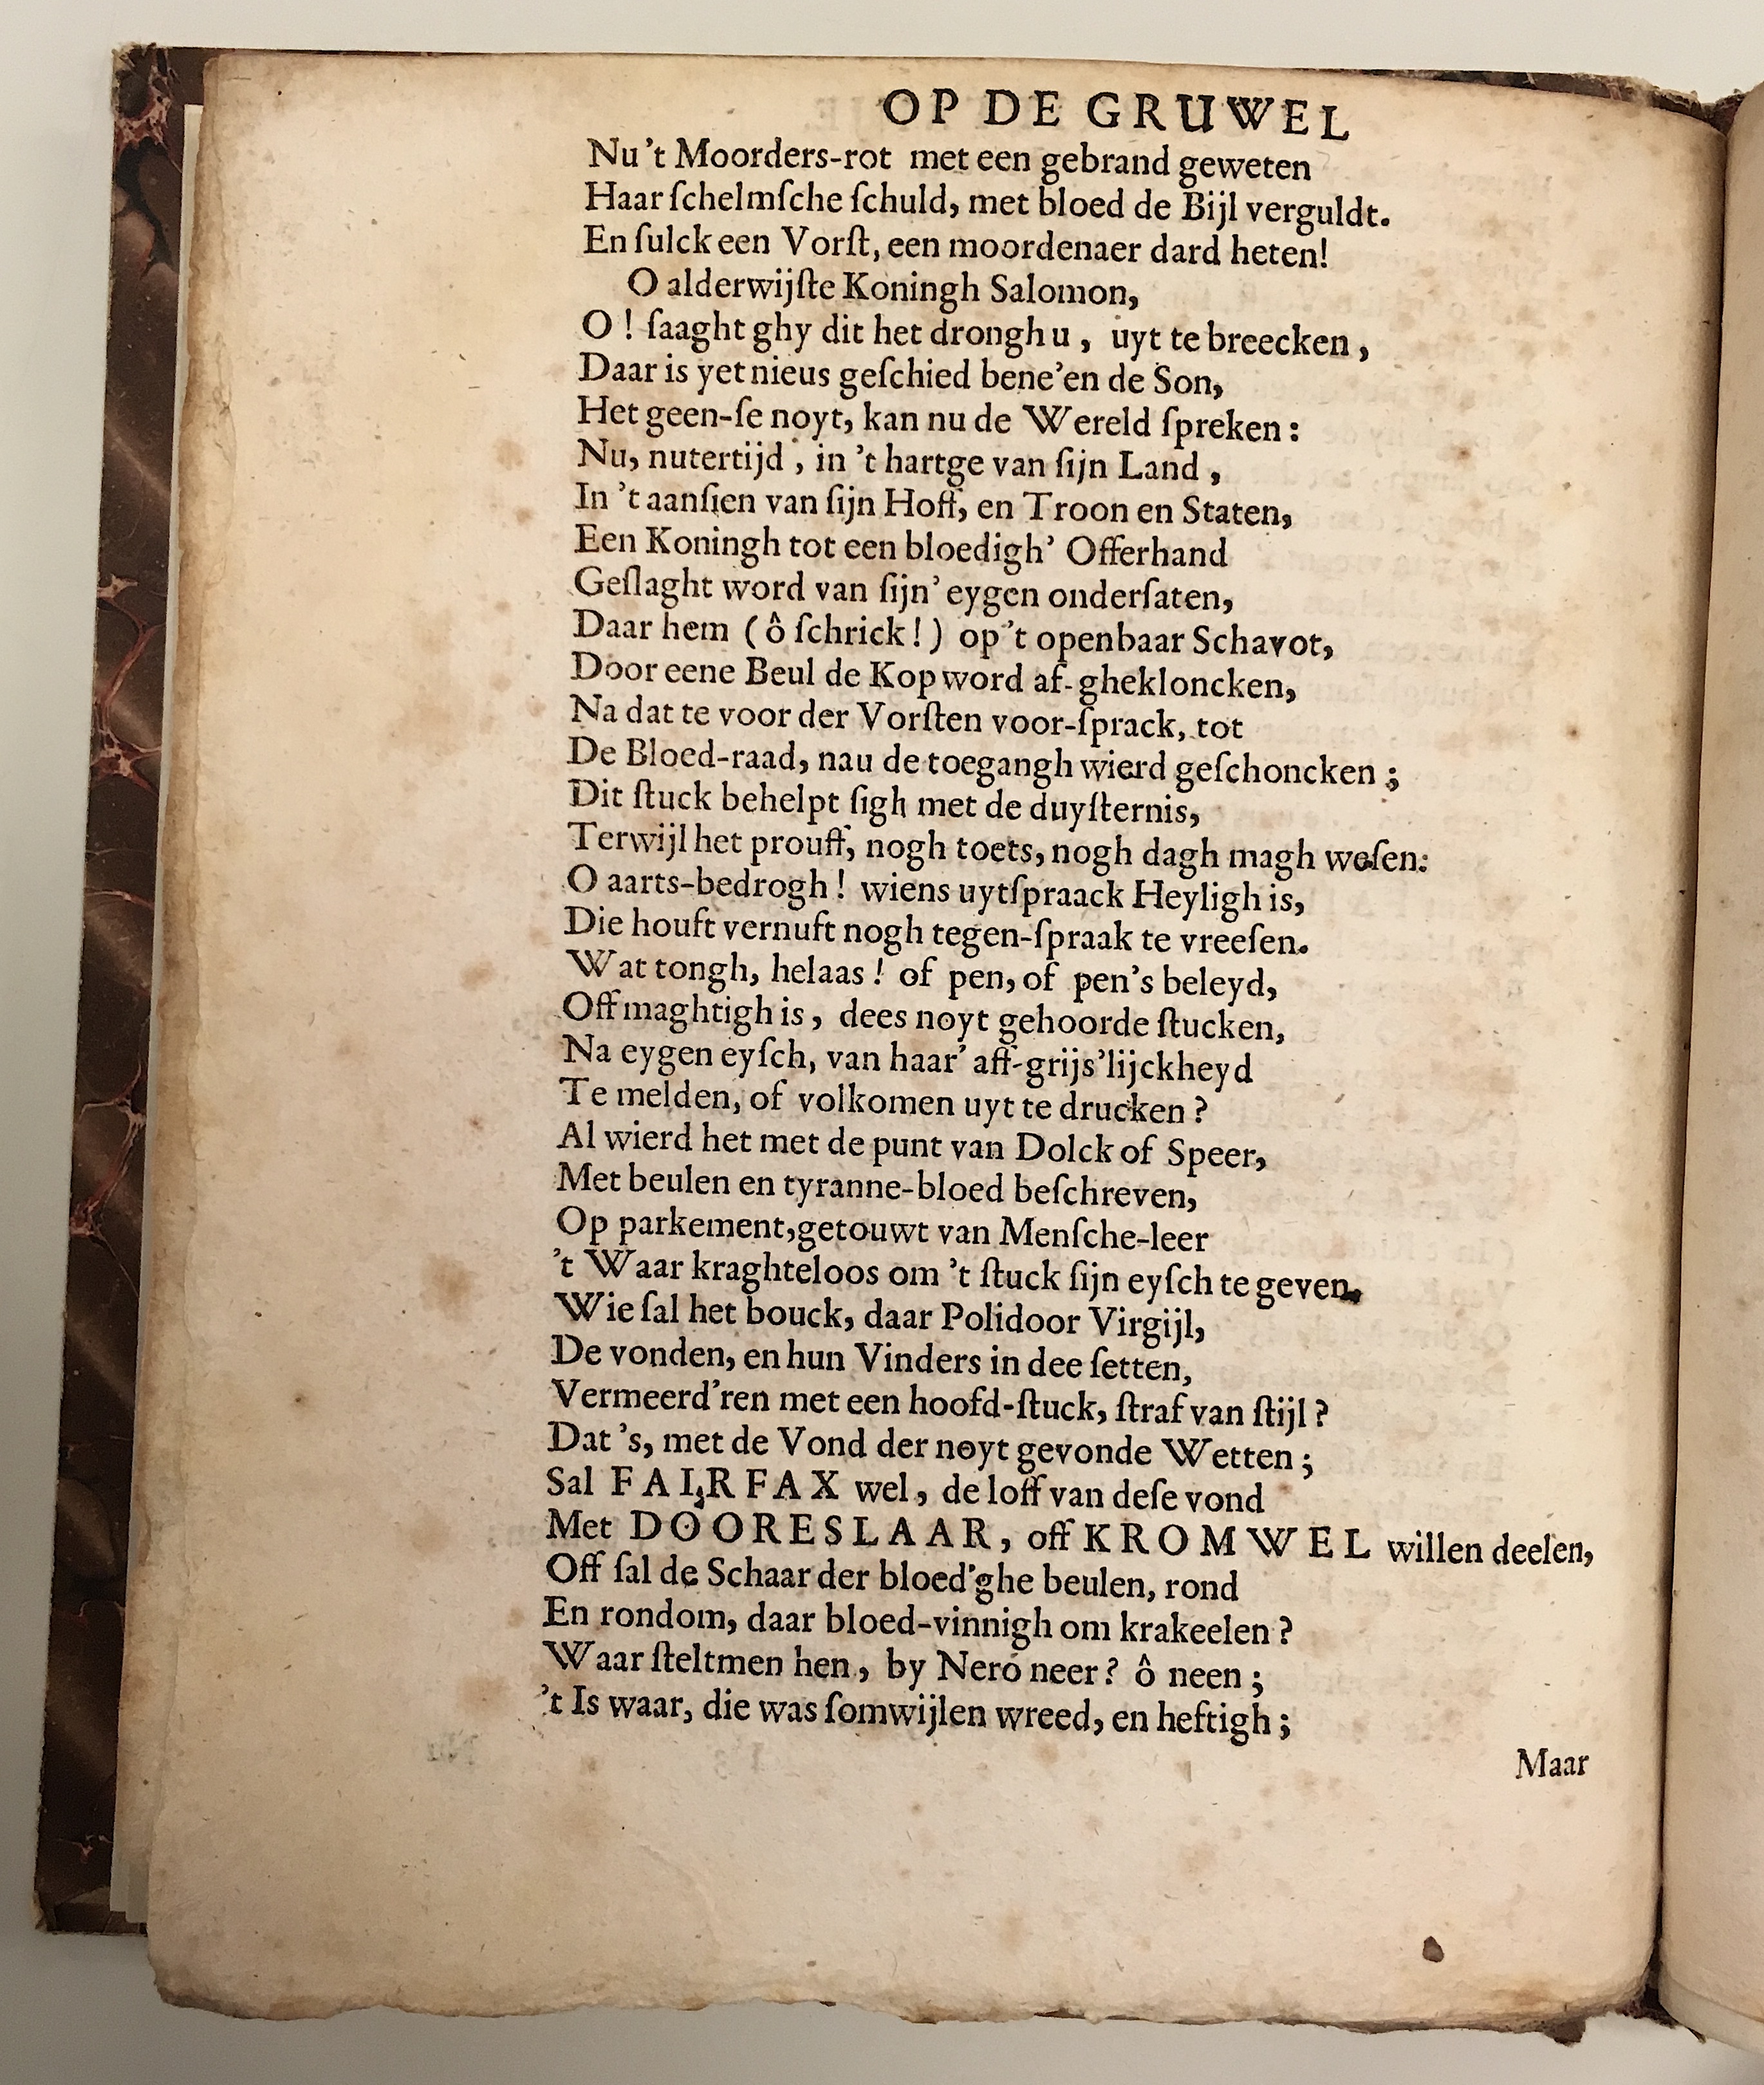 OP DE GRUWEL
Nu 't Moorders-rot met een gebrand geweten
Haar ſchelmſche ſchuld, met bloed de Bijl verguldt.
En ſulck een Vorſt, een moordenaer dard heten!
O alderwijſte Koningh Salomon,
O ! ſaaght ghy dit het drongh u , uyt te breecken ,
Daar is yet nieus geſchied bene'en de Son,
Het geen-ſe noyt, kan nu de Wereld ſpreken :
Nu, nutertijd , in 't hartge van ſijn Land ,
In 't aanſien van ſijn Hoff, en Troon en Staten,
Een Koningh tot een bloedigh' Offerhand
Geſlaght word van ſijn' eygen onderſaten,
Daar hem ( ô ſchrick ! ) op 't openbaar Schavot,
Door eene Beul de Kop word af-ghekloncken,
Na dat te voor der Vorſten voor-ſprack, tot
De Bloed-raad, nau de toegangh wierd geſchoncken ;
Dit ſtuck behelpt ſigh met de duyſternis,
Terwijl het prouff, nogh toets, nogh dagh magh weſen:
O aarts-bedrogh ! wiens uytſpraack Heyligh is,
Die houft vernuft nogh tegen-ſpraak te vreeſen.
Wat tongh, helaas ! of pen, of pen's beleyd,
Off maghtigh is , dees noyt gehoorde ſtucken,
Na eygen eyſch, van haar' aff-grijs'lijckheyd
Te melden, of volkomen uyt te drucken ?
Al wierd het met de punt van Dolck of Speer,
Met beulen en tyranne-bloed beſchreven,
Op parkement,getouwt van Menſche-leer
't Waar kraghteloos om 't ſtuck ſijn eyſch te geven.
Wie ſal het bouck, daar Polidoor Virgijl,
De vonden, en hun Vinders in dee ſetten,
Vermeerd'ren met een hoofd-ſtuck, ſtraf van ſtijl ?
Dat 's, met de Vond der noyt gevonde Wetten ;
Sal FAIRFAX wel , de loff van deſe vond
Met DOORESLAAR, off KROMWEL willen deelen,
Off ſal de Schaar der bloed'ghe beulen, rond
En rondom, daar bloed-vinnigh om krakeelen ?
Waar ſteltmen hen , by Nero neer ? ô neen ;
't Is waar, die was ſomwijlen wreed, en heftigh ;
Maar